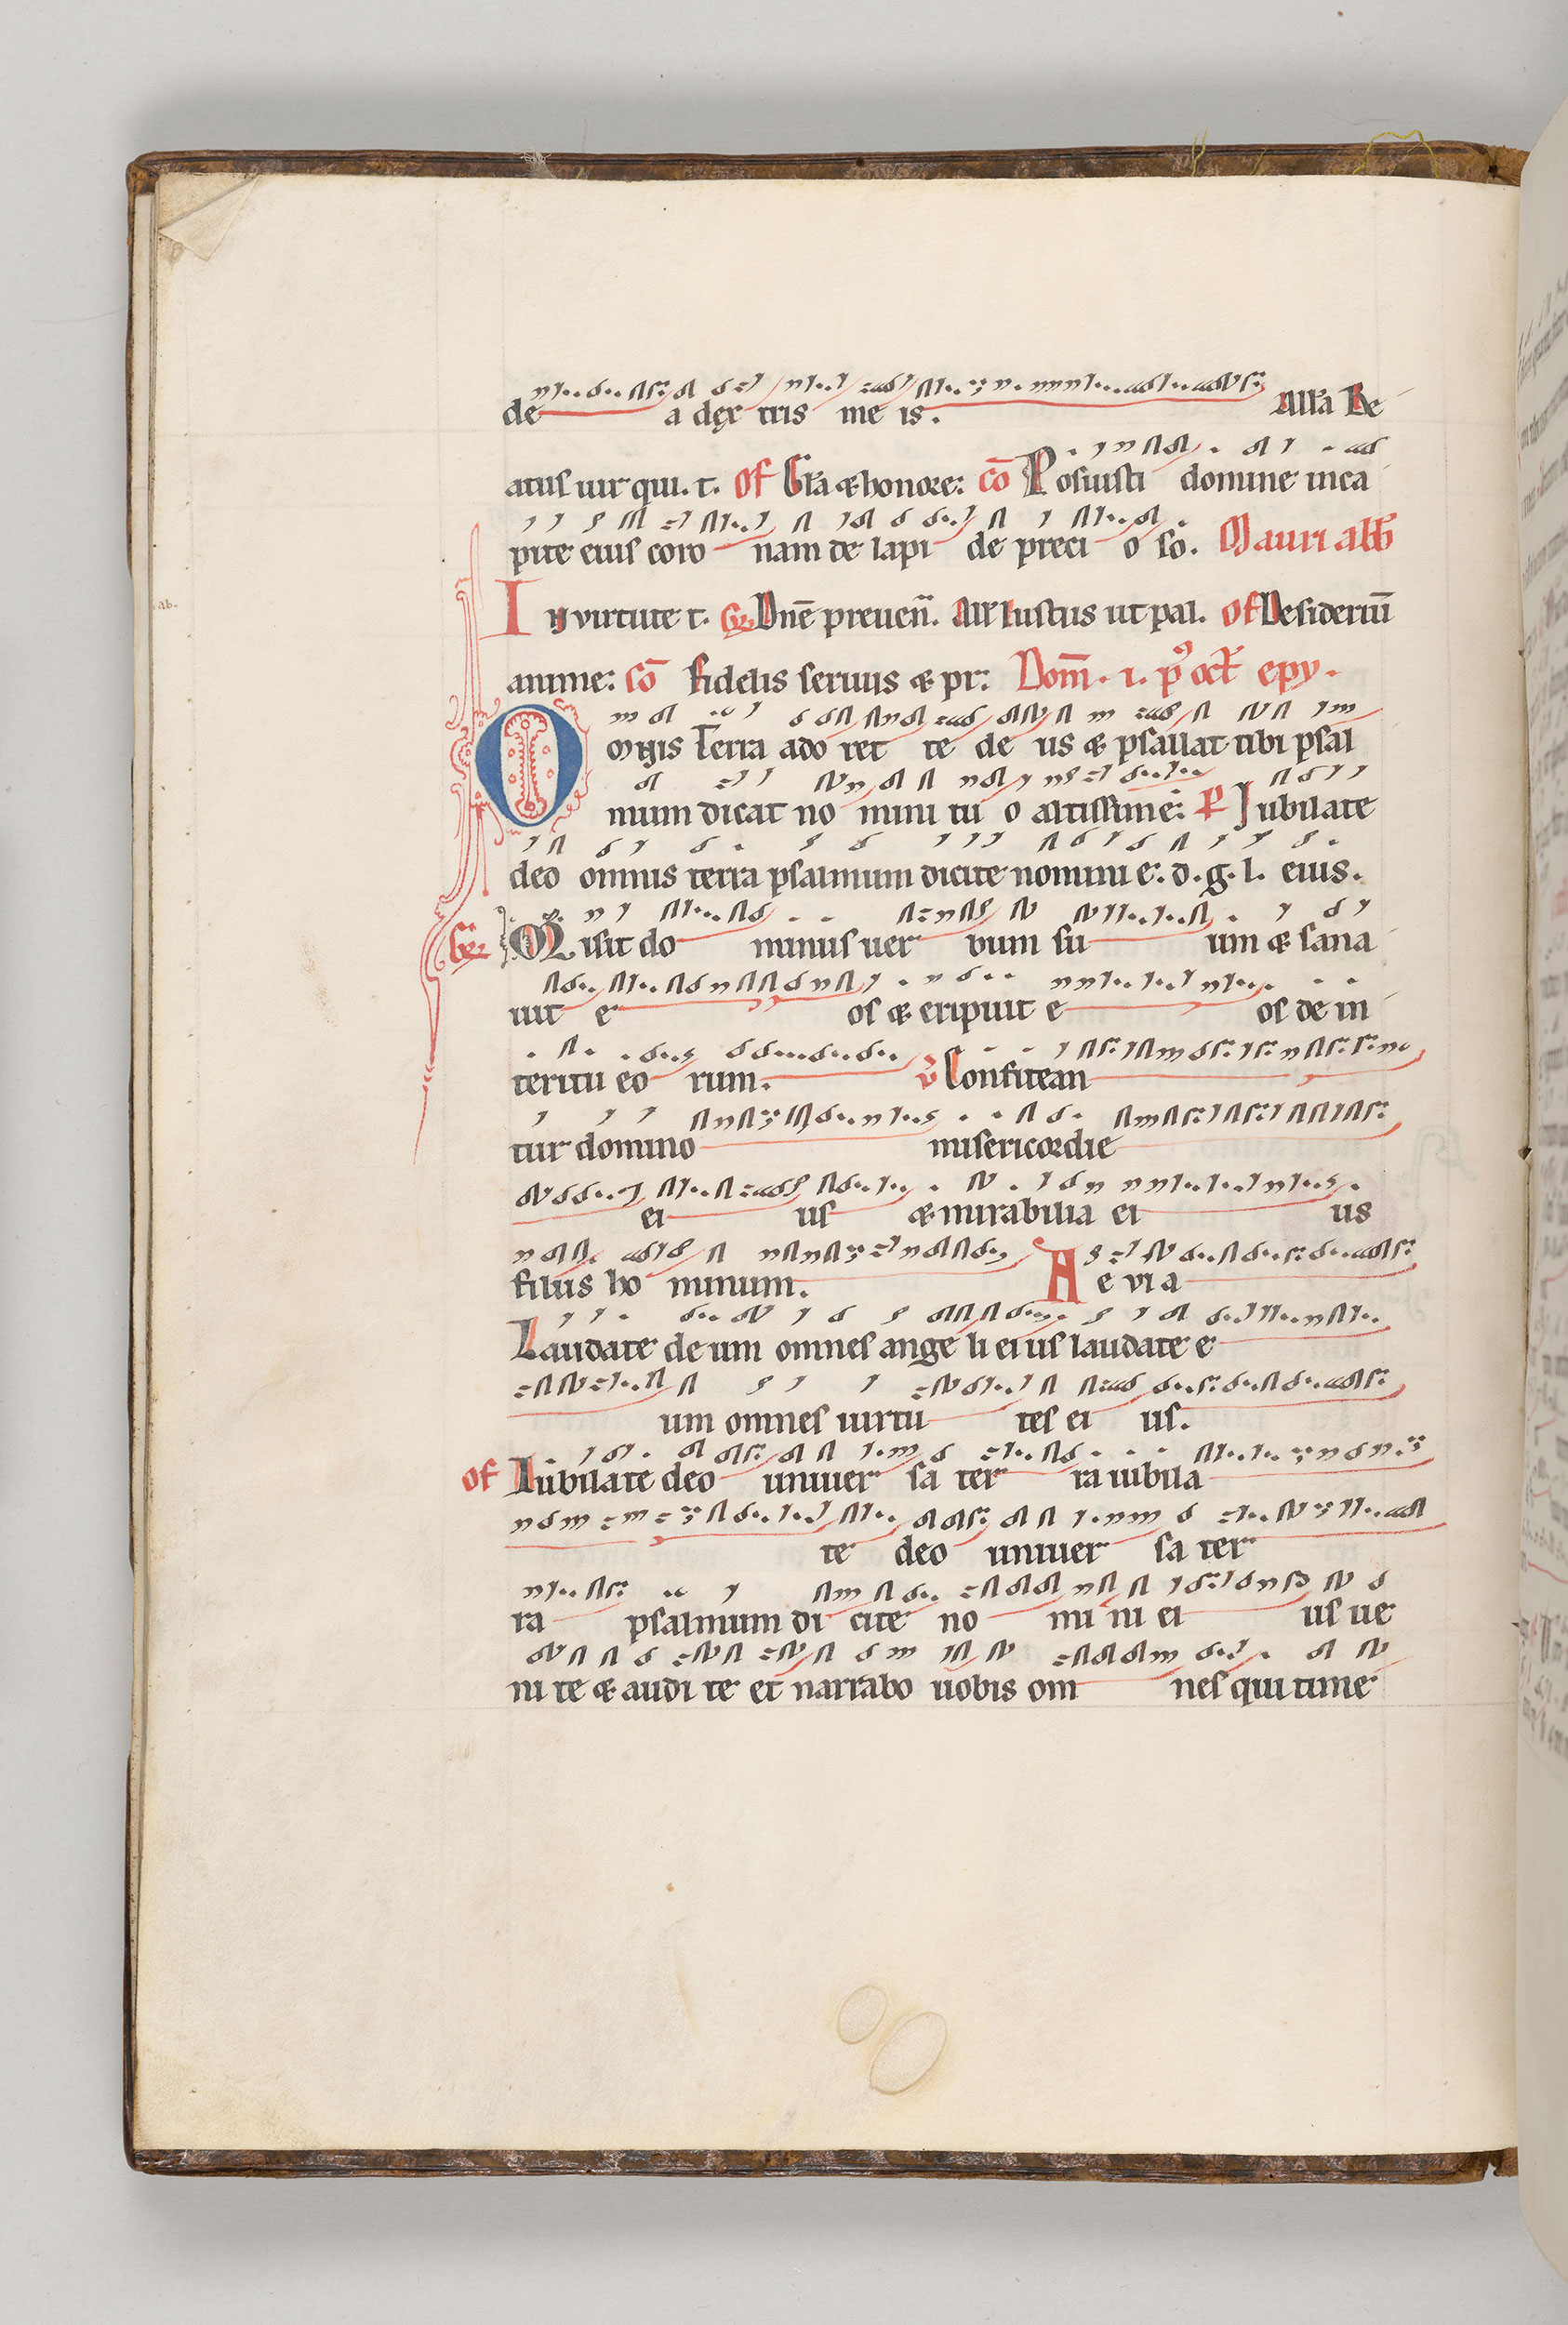 de a dęx tris me is. Allꝉa Be
atus uir qui. t. Of Gꝉa ⁊ honore: Cō Posuisti domine in ca
pite eius coro nam de lapi de preci o so. Mauri abb
In virtute t. Gr. Dnē preuen. Allꝉ Iustus ut pal. Of Desideriū
anime: Cō Fidelis seruus ⁊ pr: Dom̄. i. p9 oct epy.
Omnis Terra ado ret te de us ⁊ psallat tibi psal
mum dicat no mini tu o altissime: P Iubilate
deo omnis terra psalmum dicite nomini e: d. g. l. eius.
Gr. Misit do minus uer bum su um ⁊ sana
uit e os ⁊ eripuit e os de in
teritu eo rum. v Confitean
tur domino misericordie
ei us ⁊ mirabilia ei us
filiis ho minum. A e vi a
Laudate de um omnes ange li ei us laudate e
um omnes uirtu tes ei us.
Of Iubilate deo uniuer sa ter ra iubila
te deo uniuer sa ter
ra psalmum di cite no mi ni ei us ue
ni te ⁊ audi te et narrabo uobis om nes qui time